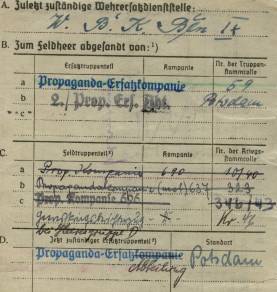 A. Zuletzt zuständige Wehrersatzdienststelle:
W. B. K. Bln IX
B. Zum Feldheer abgesandt von:¹)
Ersatztruppenteil Kompanie Nr. der Truppenstammrolle
a Propaganda-Ersatzkompanie 59
b 2./Prop. Ers. Abt. Potsdam
"c"
C. Feldtruppenteil²) Kompanie Nr. der Kriegsstammrolle
a Prop. Kompanie 690 10/40
b Propagandakompanie (mot) 637 323
c Prop. Kompanie 696 346/43
bei Heeresgruppe D
D. Jetzt zuständiger Ersatztruppenteil³) Standort
Propaganda-Ersatzkompanie Potsdam
Abteilung